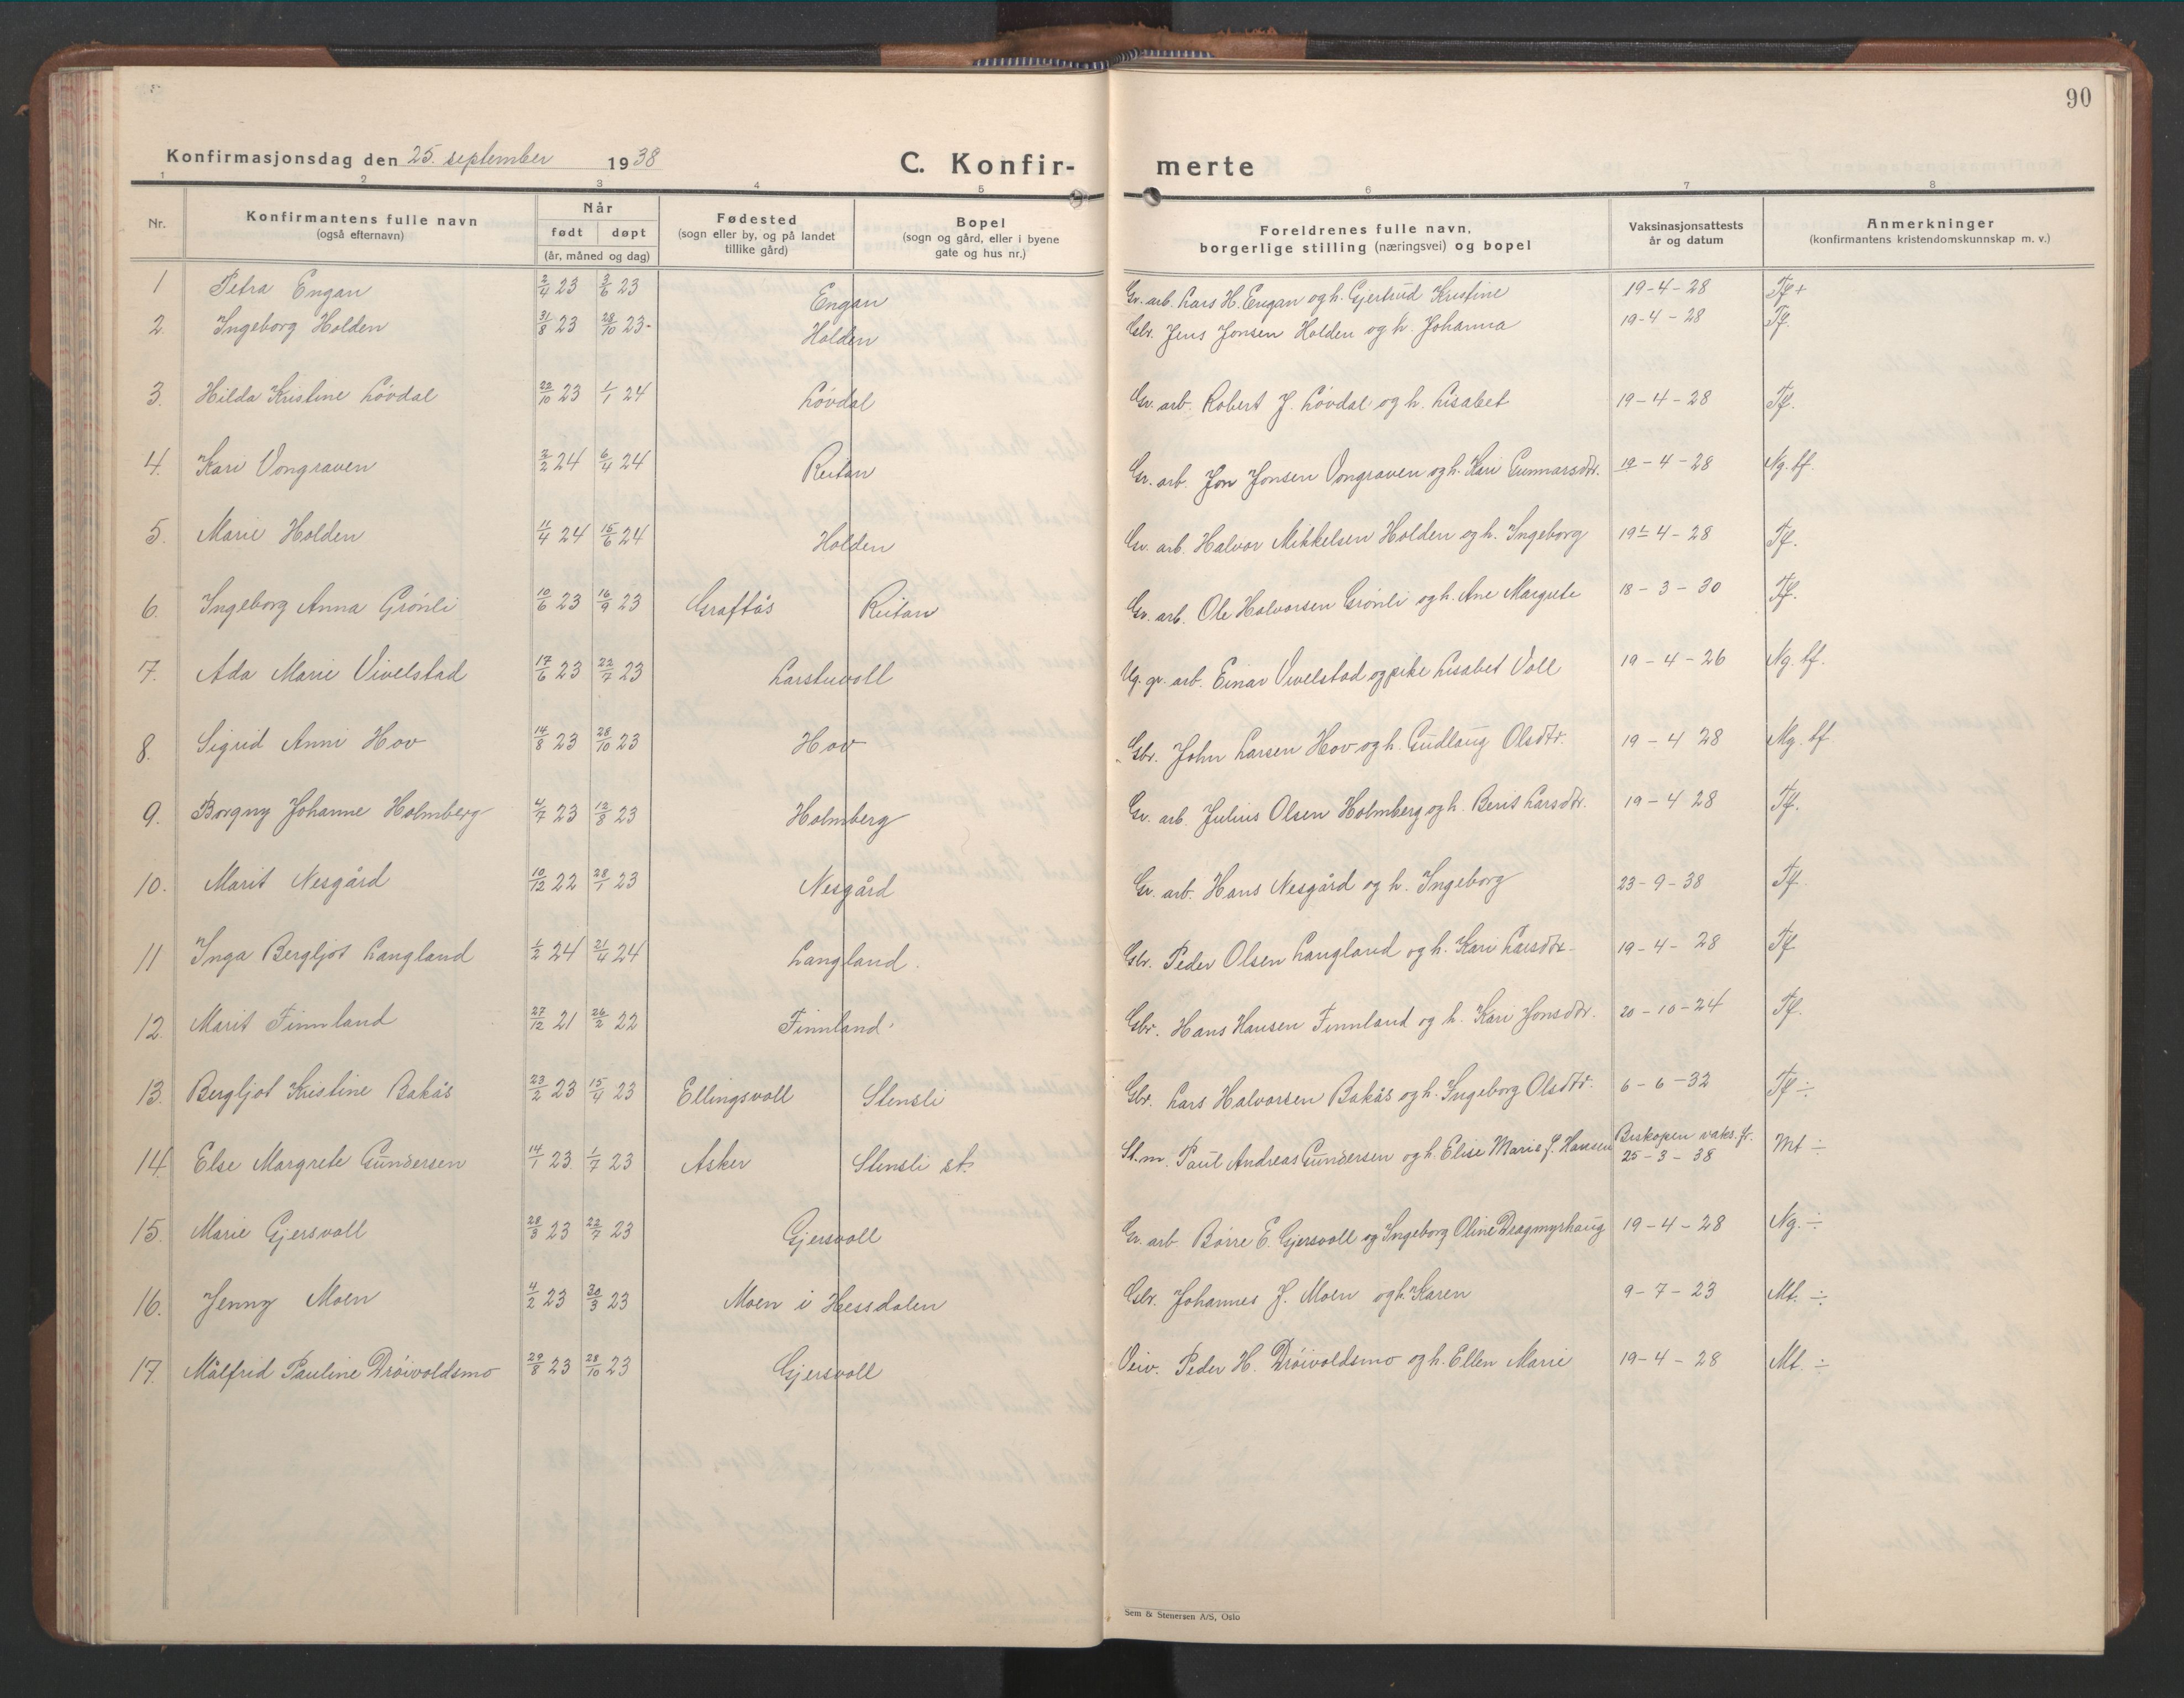 90
Konfirmasjonsdag den 25. september 1938
C. Konfir- merte
1 2 3 4 5 6 7 8
Nr. | Konfirmantens fulle navn (også efternavn) | Når født | døpt (år, måned og dag) | Fødested (sogn eller by, og på landet tillike gård) | Bopel (sogn og gård, eller i byene gate og hus nr.) | Foreldrenes fulle navn, borgerlige stilling (næringsvei) og bopel | Vaksinasjonsattests år og datum | Anmerkninger (konfirmantens kristendomskunnskap m. v.)
1 Petra Engan 2/4 23 3/6 23 Engan Gr. arb. Lars H. Engan og h. Gjertrud Kristine 19-4-28 Tf +
2. Ingeborg Holden 31/8 23 28/10 23- Holden Gbr. Jens Jonsen Holden og h. Johanna 19-4-28 Tf.
3. Hilda Kristine Lövdal 22/10 23 1/1 24 Lövdal Gr. arb. Robert J. Lövdal og h. Lisabet 19-4-28 Tf.
4. Kari Vongraven 3/2 24 6/4 24 Reitan Gr. arb. Jon Jonsen Vongraven og h. Kari Gunnarsdtr. 19-4-28 Ng. tf.
5. Marie Holden 11/4 24 15/6 24 Holden Gr. arb. Halvor Mikkelsen Holden og h. Ingeborg 19-4-28 Tf.
6. Ingeborg Anna Grönli 10/6 23 16/9 23 Graftås Reitan Gr. arb. Ole Halvorsen Grönli og h. Ane Margrete 18-3-30 Tf.
7. Ada Marie Vivelstad 17/6 23 22/7 23 Larstuvoll Ug. gr. arb. Einar Vivelstad og pike Lisabet Voll 19-4-26 Ng. tf.
8. Sigrid Anni Hov 14/8 23 28/10 23 Hov Gbr. John Larsen Hov og h. Gudlaug Olsdtr. 19-4 28 Mg. tf
9. Borgny Johanne Holmberg 4/7 23 12/8 23 Holmberg Gr. arb. Julius Olsen Holmberg og h. Berit Larsdtr. 19-4 28 Tf.
10. Marit Nesgård 10/12 22 28/1 23 Nesgård Gr. arb. Hans Nesgård og h. Ingeborg 23-9-38 Tf
11 Inga Bergljot Langland 1/2 24 21/4 24 Langland. Gbr. Peder Olsen Langland og h. Kari Larsdtr 19-4-28 Tf
12. Marit Finnland 27/12 21 26/2 22 Finnland. Gbr. Hans Hansen Finnland og h. Kari Jonsdtr. 20-10-24 Tf.
13. Bergljot Kristine Bakås 23/2 23 15/4 23 Ellingsvoll Stensli Gbr. Lars Halvorsen Bakås og h. Ingeborg Olsdtr. 6-6-32 Tf ÷
14. Else Margrete Gundersen 14/1 23 1/7 23 Asker Stensli st. St. m. Paul Andreas Gundersen og h. Elise Marie f. Hansen Biskopen vaks. fr. 25-3-38 Mt ÷
15. Marie Gjersvoll 28/3 23 22/7 23 Gjersvoll Gr. arb. Börre E. Gjersvoll og Ingeborg Oline Dragmyrhaug 19-4-28 Ng. ÷
16. Jenny Moen 4/2 23 30/3 23 Moen i Hessdalen Gbr. Johannes J. Moen og h. Karen 9-7-23 Mt. ÷
17. Målfrid Pauline Dröivoldsmo 29/8 23 28/10 23 Gjersvoll Veiv. Peder H. Dröivoldsmo og h. Ellen Marie 19-4-28 Mt. ÷
Sem & Stenersen A/S, Oslo